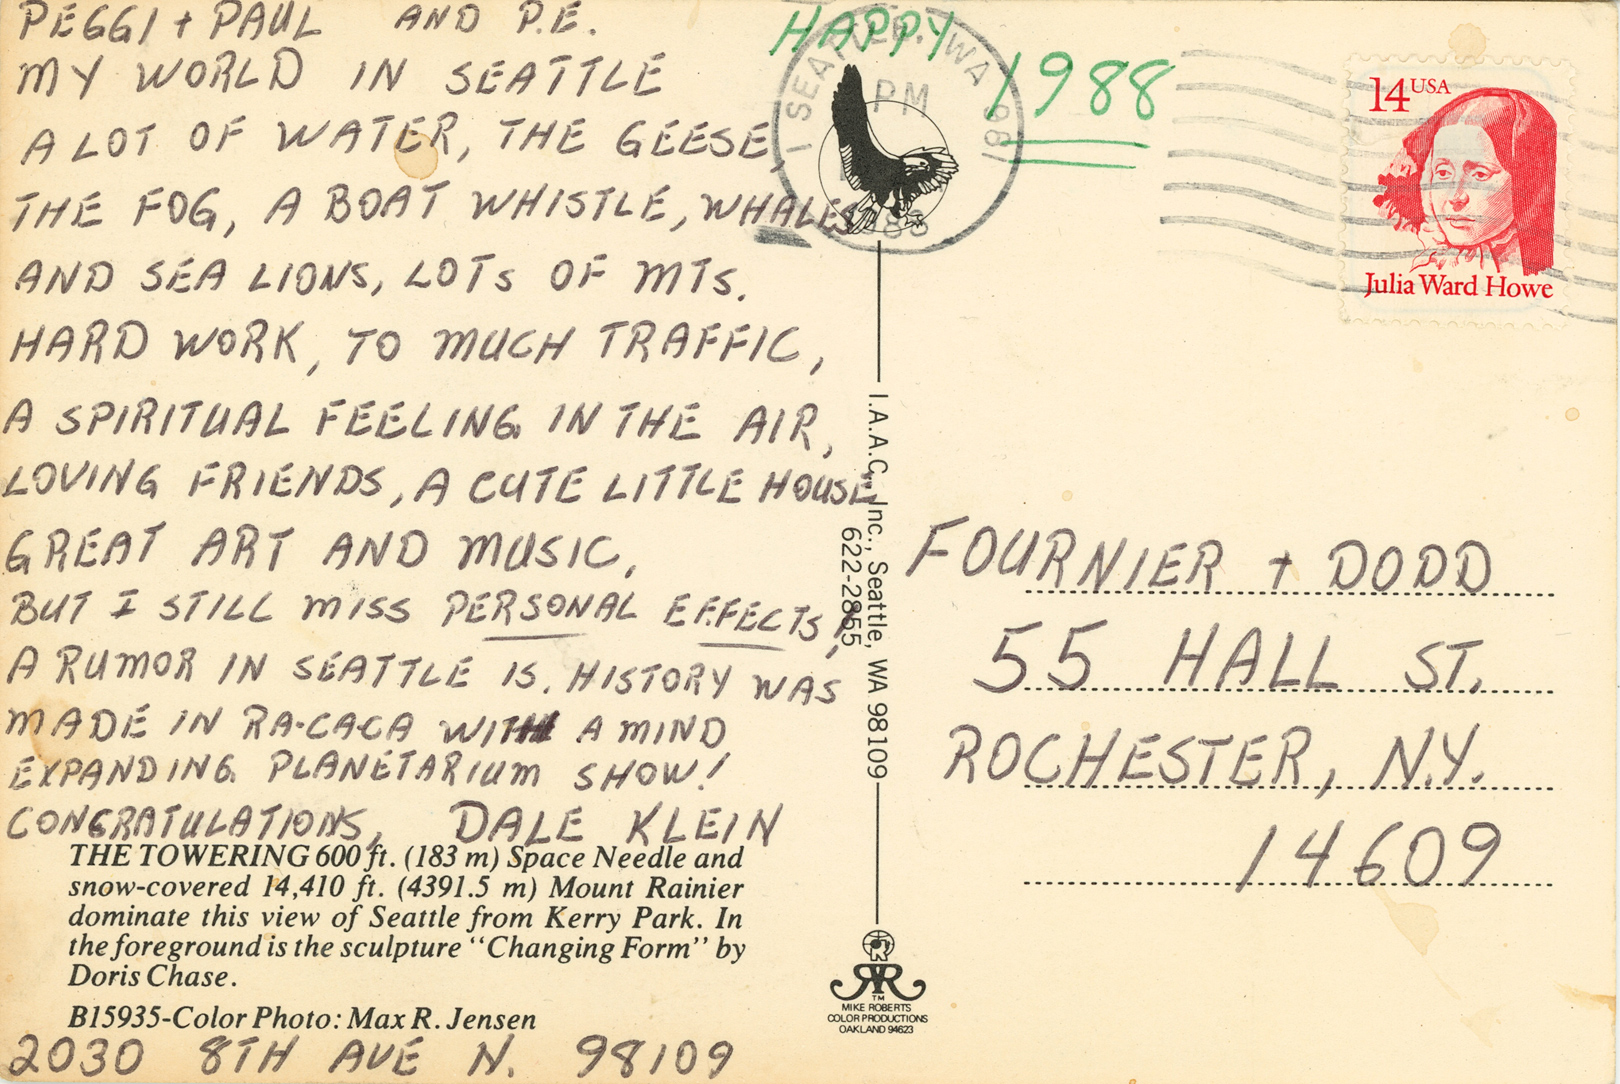 PEGGI + PAUL AND P.E.
MY WORLD IN SEATTLE
A LOT OF WATER, THE GEESE,
THE FOG, A BOAT WHISTLE, WHALES
AND SEA LIONS, LOTS OF MTS.
HARD WORK, TO MUCH TRAFFIC,
A SPIRITUAL FEELING IN THE AIR,
LOVING FRIENDS, A CUTE LITTLE HOUSE
GREAT ART AND MUSIC,
BUT I STILL MISS PERSONAL EFFECTS,
A RUMOR IN SEATTLE IS. HISTORY WAS
MADE IN RA-CA-CA WITH A MIND
EXPANDING PLANETARIUM SHOW!
CONGRATULATIONS, DALE KLEIN
THE TOWERING 600 ft. (183 m) Space Needle and
snow-covered 14,410 ft. (4391.5 m) Mount Rainier
dominate this view of Seattle from Kerry Park. In
the foreground is the sculpture “Changing Form” by
Doris Chase.
B15935-Color Photo: Max R. Jensen
2030 8TH AVE N. 98109
HAPPY
1988
SEATTLE, WA 981
PM
I.A.A.C., Inc., Seattle, WA 98109
622-2855
TM
MIKE ROBERTS
COLOR PRODUCTIONS
OAKLAND 94623
14 USA
Julia Ward Howe
FOURNIER + DODD
55 HALL ST.
ROCHESTER, N.Y.
14609